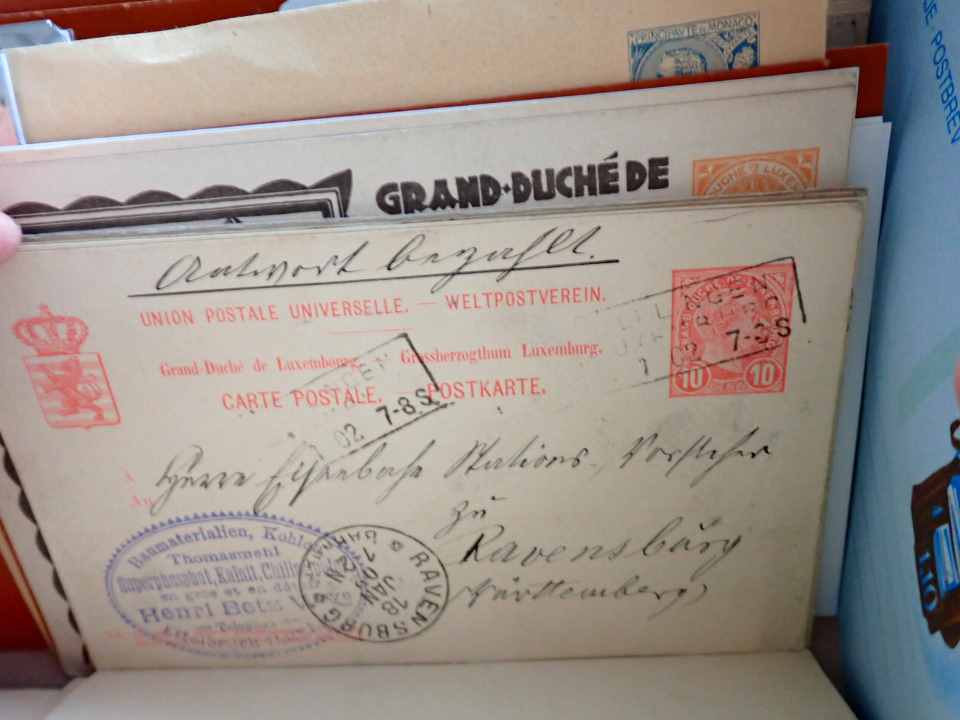 PRINCIPAUTE DE MONACO
GRAND-DUCHÉ DE
DUCHÉ LUXEM
POSTBREV
Antwort bezahlt.
UNION POSTALE UNIVERSELLE. — WELTPOSTVEREIN.
Grand-Duché de Luxembourg. Grossherzogthum Luxemburg.
CARTE POSTALE. POSTKARTE.
10 10
7-8S
02 7-8.S
Herrn Eisenbahn Stations-Vorsteher
zu
Ravensburg
Württemberg
Baumaterialien, Kohle
Thomasmehl
Superphosphat, Kainit, Chili
en gros et en dé
Henri Bets
RAVENSBURG
18 JAN